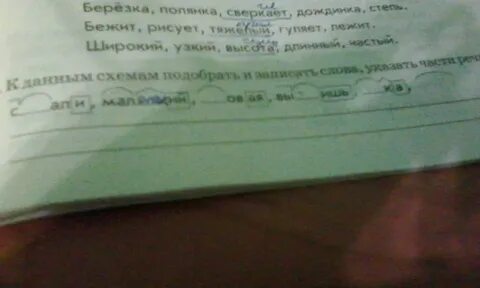 гл
Берёзка, полянка, сверкает, дождинка, степь.
Бежит, рисует, тяжёлый, гуляет, лежит.
Широкий, узкий, высота, длинный, частый.
К данным схемам подобрать и записать слова, указать части речи
с али, мал ий, овая, вы ишь ка,